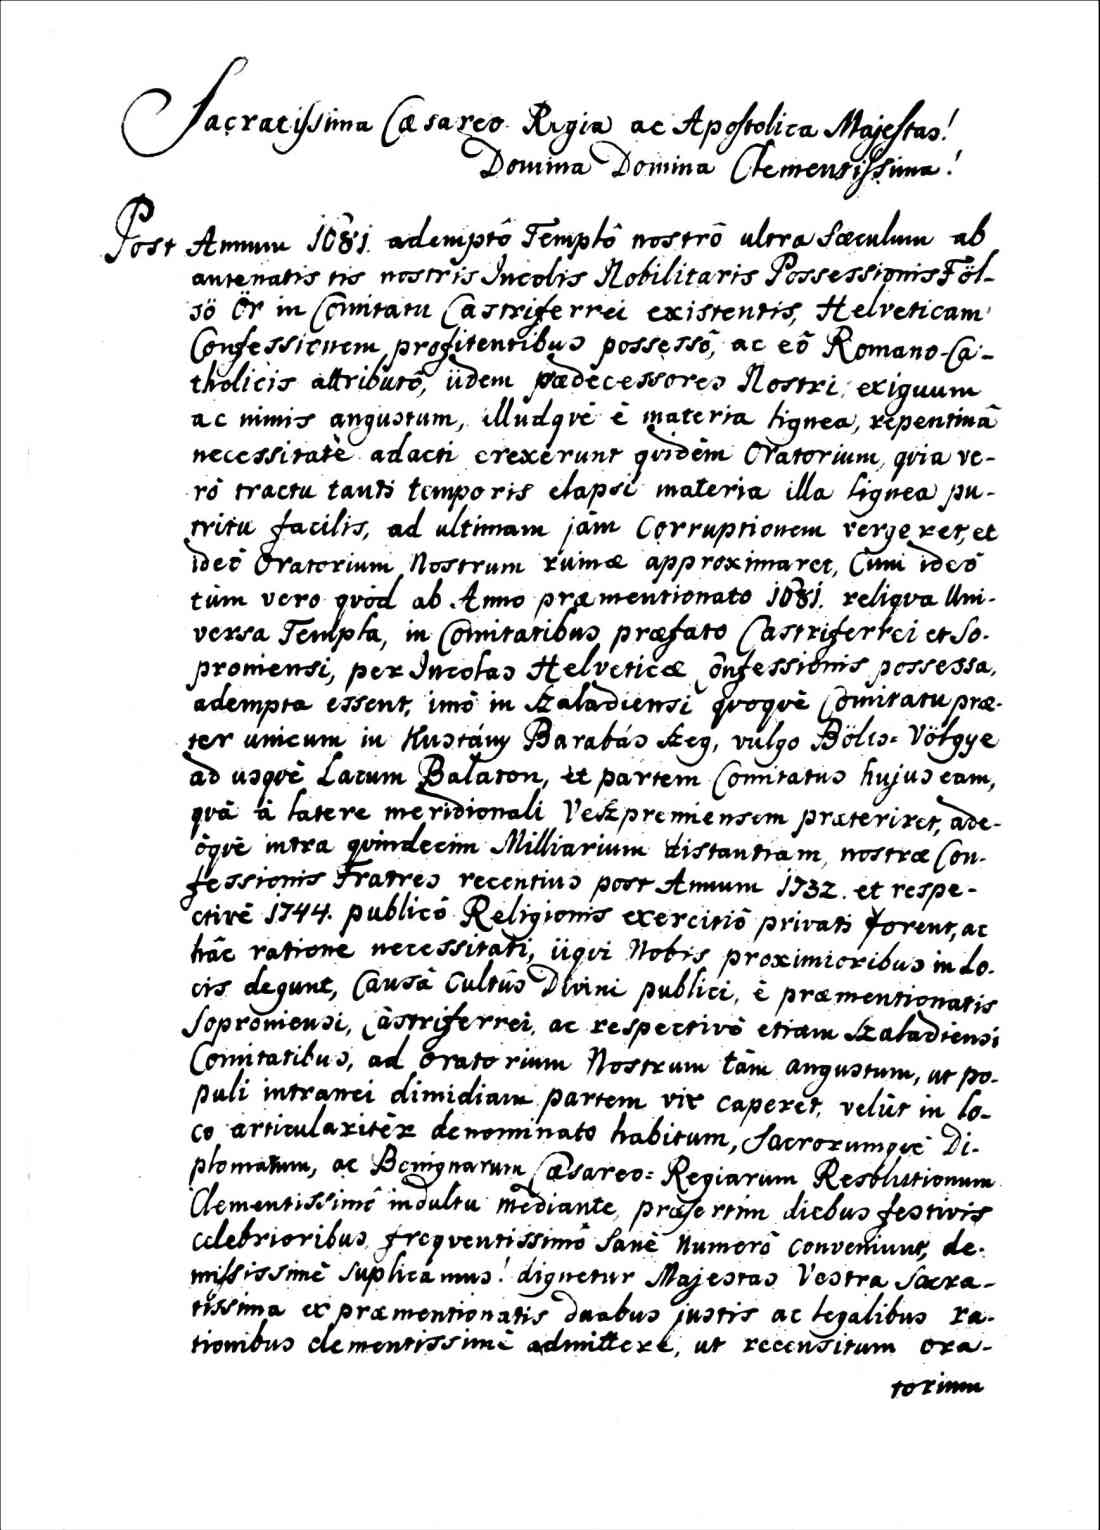 Sacratissima Cæsareo Regia ac Apostolica Majestas!
Domina Domina Clementissima!
Post Annum 1681. ademptô Templô nostrô ultra Sæculum ab
antenatis tis nostris Incolis Nobilitaris Possessionis Föl-
sö Ör in Comitatu Castriferrei existentis, Helveticam
Confessionem profitentibus possessô, ac eô Romano-Ca-
tholicis attributô, iidem prædecessores Nostri exiguum
ac nimis angustum, illudqvè è materia lignea, repentinâ
necessitatè adacti erexerunt qvidèm Oratorium, qvia ve-
rô tractu tanti temporis elapsi materia illa lignea pu-
tritu facilis, ad ultimam jàm Corruptionem vergeret, et
ideô Oratorium Nostrum ruinæ approximaret, Cùm ideô
tùm vero qvòd ab Anno præmentionato 1681. reliqva Uni-
versa Templa, in Comitatibus præfato Castriferrei et So-
proniensi, per Incolas Helveticæ Confessionis possessa,
adempta essent, imô in Szaladiensi qvoqvè Comitatu præ-
ter unicum in Kustány Barabás Szeg, vulgo Bölts= Völgye
ad usqvè Lacum Balaton, et partem Comitatus hujus eam,
qvâ à latere meridionali Veszpremiensem præteriret, ade-
òqvè intra qvindecim Milliarium distantiam, nostræ Con-
fessionis Fratres recentius post Annum 1732. et respe-
ctivè 1744. publicô Religionis exercitiô privati forent, ac
hâc ratione necessitati, iiqvi Nobis proximioribus in Lo-
cis degunt, Causâ Cultûs Divini publici, è præmentionatis
Soproniensi, Càstriferrei, ac respectivô etiam Szaladiensi
Comitatibus, ad Oratorium Nostrum tàm angustum, ut po-
puli intranei dimidiam partem vix caperet, velùt in lo-
co articularitèr denominato habitum, Sacrorumqvè Di-
plomatum, ac Benignarum Cæsareo= Regiarum Resolutionum
Clementissimô indultu mediante, præsertim diebus festivis
celebrioribus, freqventissimô Sanè Numerô conveniunt, de-
missimè suplicamus! dignetur Majestas Vestra Sacra-
tissima ex præmentionatis duabus justis ac legalibus ra-
tionibus clementissimè admittere, ut recensitum ora-
torium